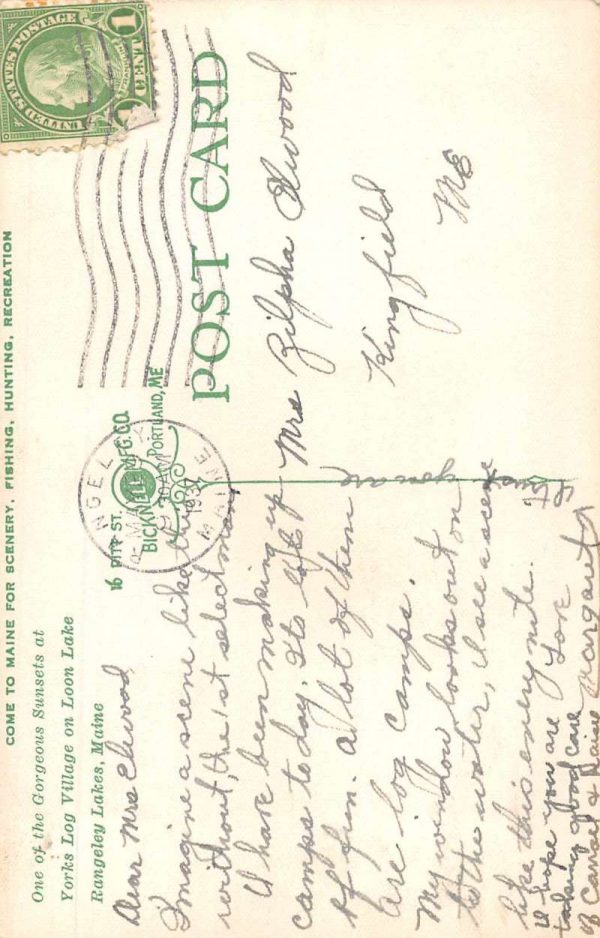 COME TO MAINE FOR SCENERY, FISHING, HUNTING, RECREATION
One of the Gorgeous Sunsets at
Yorks Log Village on Loon Lake
Rangeley Lakes, Maine
Dear Mrs Elwood
Imagine a scene like this
without the 1st selectman
I have been making up
camps to day. Its lots
of fun. A lot of them
are log camps.
My window looks out on
to the water, I see a scene
like this every nite.
I hope you are
taking good care
of
Love
Margaret
you are
16 PITT ST.
BICKNELL MFG. CO.
PORTLAND, ME
MAINE
1937
POST CARD
UNITED STATES POSTAGE
1 CENT 1
Mrs Zilpha Elwood
Kingfield
Me